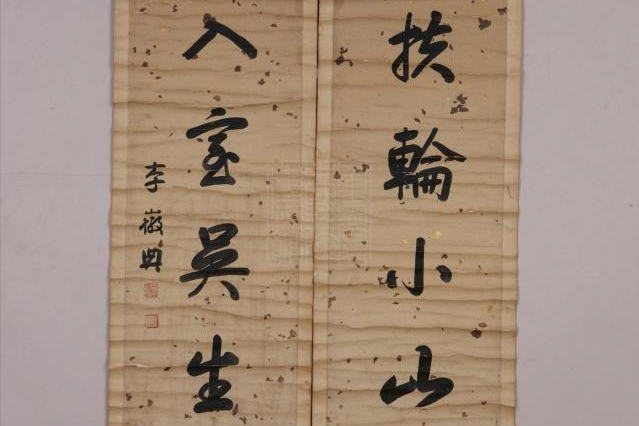 扶輪小山
入室吳生
李徽典